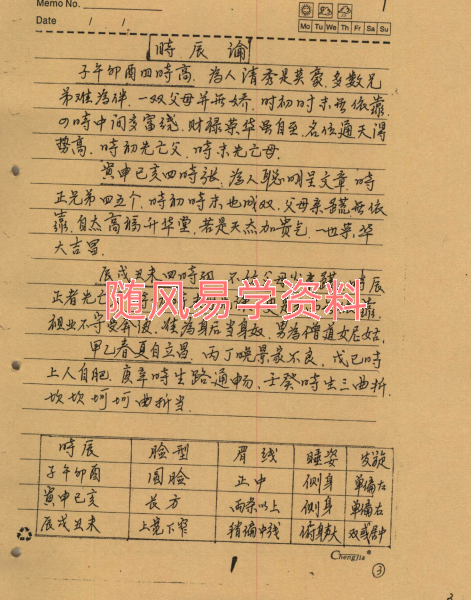 Memo No.
Date / /
Mo Tu We Th Fr Sa Su
時辰論
子午卯酉四時高.為人清秀是英豪.多数兄
弟难為伴.一双父母并無娇.时初时末無依靠.
四時中间多富绕.财禄荣华虽自至.名位通天得
势高.時初先亡父.時末先亡母.
寅申已亥四時张.為人聪明呈文章.時
正兄弟四五个.時初時末也成双.父母亲無依
靠.自杰高福升华堂.若是天杰加贵气.一世荣华
大吉昌.
辰戌丑未四時 不依父母
正者先亡
随风易学资料
靠.
祖业不守受奔波.难為身后当身奴.男為僧道女尼姑.
甲乙春夏自立昌.丙丁晚景衣不良.戊已時
上人自肥.庚辛時生路通畅.壬癸時生三曲折.
坎坎坷坷曲折当.
時辰 脸型 眉线 睡姿 发旋
子午卯酉 圆脸 正中 侧身 单偏左
寅申已亥 長方 两条以上 侧身 单偏右
辰戌丑未 上宽下窄 稍偏中线 俯身大 双或居中
Chengjia
1
③